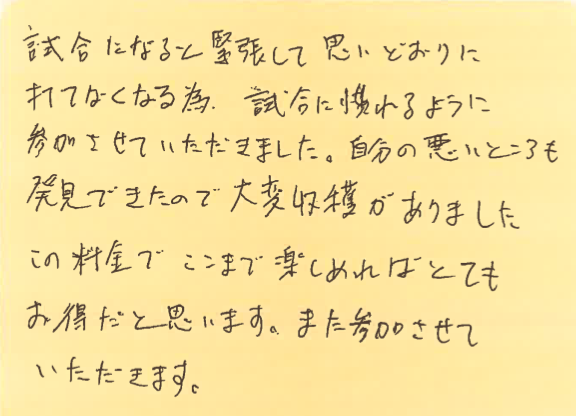 試合になると緊張して思いどおりに
打てなくなる為、試合に慣れるように
参加させていただきました。自分の悪いところも
発見できたので大変収穫がありました
この料金でここまで楽しめればとても
お得だと思います。また参加させて
いただきます。